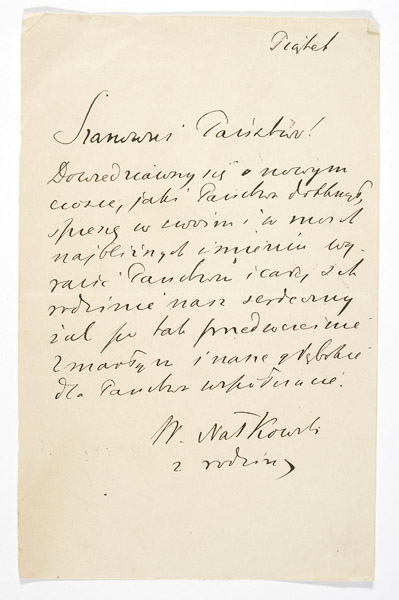 Piątek
Szanowni Państwo!
Dowiedziawszy się o nowym
ciosie, jaki Państwa dotknął,
spieszę w swoim i w moich
najbliższych imieniu wy-
razić Państwu i całej Ich
rodzinie nasz serdeczny
żal po tak przedwcześnie
zmarłym i nasze głębokie
dla Państwa współczucie.
W. Natkowski
z rodziną